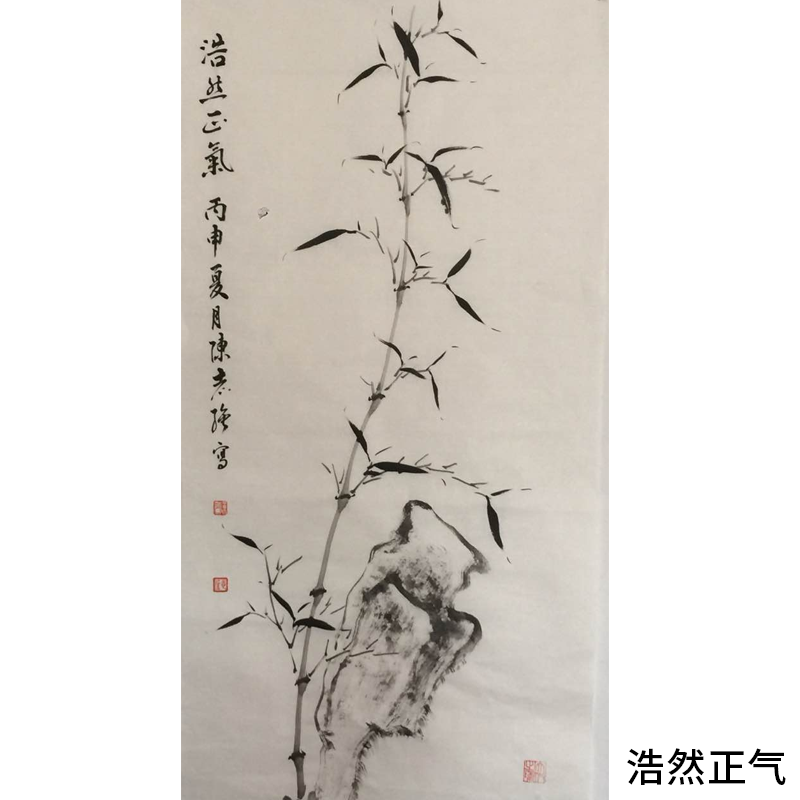 浩然正氣
丙申夏月陳志強寫
浩然正气